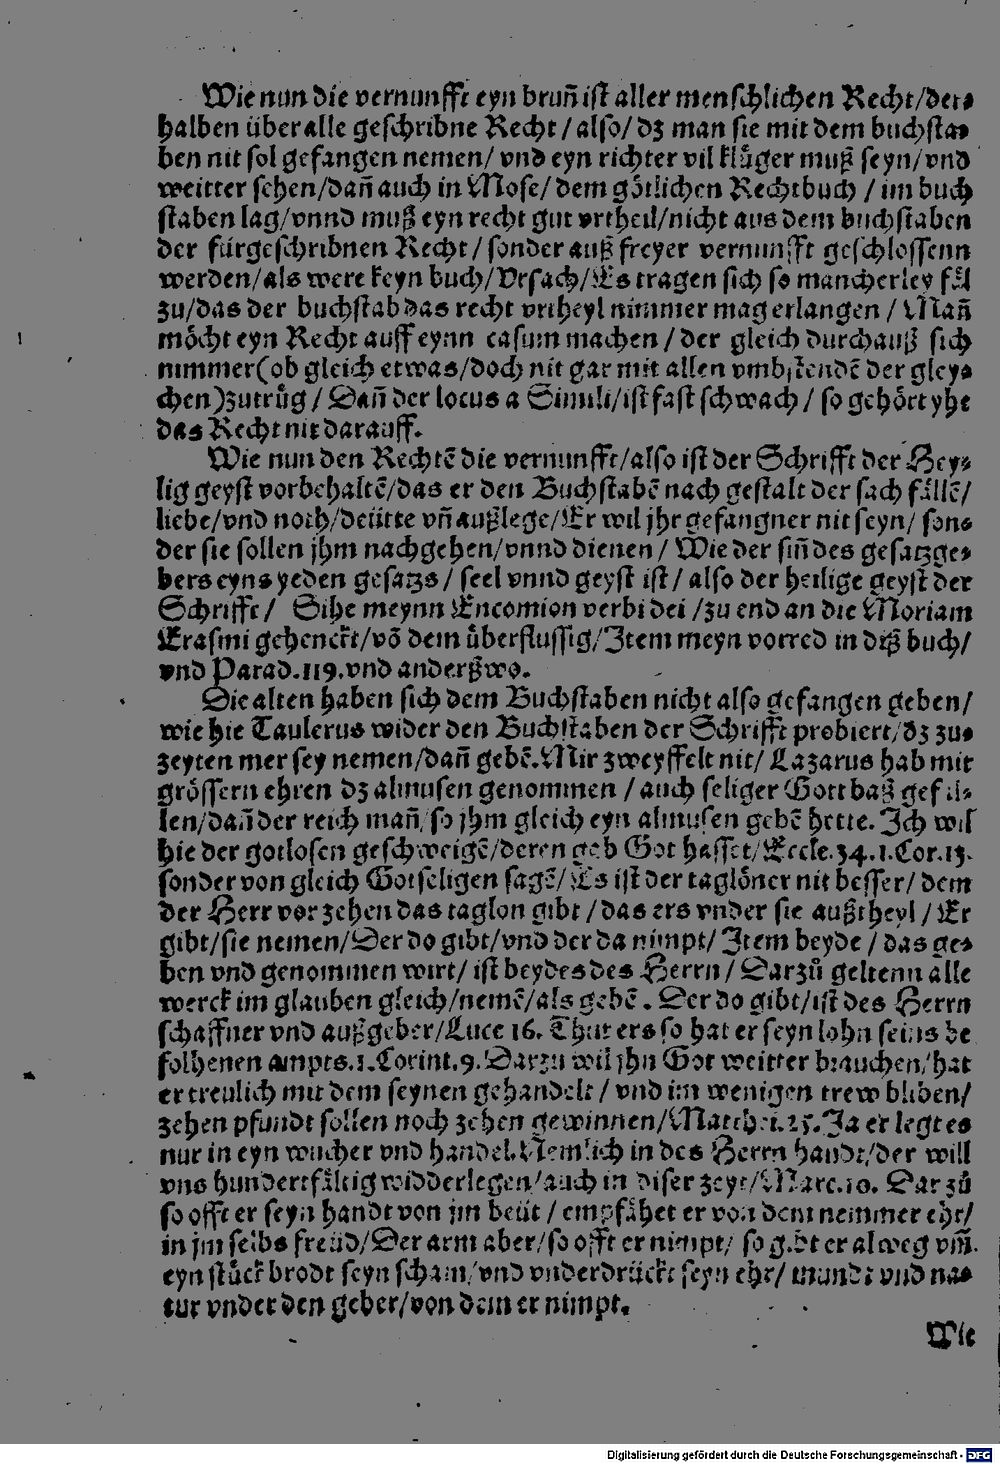 Wie nun die vernunfft eyn brun̄ ist aller menschlichen Recht/der⸗
halben über alle geschribne Recht/also/dz man sie mit dem buchsta⸗
ben nit sol gefangen nemen/vnd eyn richter vil klůger muß seyn/vnd
weitter sehen/dan̄ auch in Mose/dem götlichen Rechtbuch/im buch
staben lag/vnnd muß eyn recht gut vrtheil/nicht aus dem buchstaben
der fürgeschribnen Recht/sonder auß freyer vernunfft geschlossenn
werden/als were keyn buch/Vrsach/Es tragen sich so mancherley fål
zu/das der buchstab das recht vrtheyl nimmer mag erlangen/Man̄
möcht eyn Recht auff eynn casum machen/der gleich durchauß sich
nimmer(ob gleich etwas/doch nit gar mit allen vmbstendē der gley⸗
chen)zutrüg/Dan̄ der locus a Simili/ist fast schwach/so gehört yhe
das Recht nit darauff.
Wie nun den Rechtē die vernunfft/also ist der Schrifft der Hey⸗
lig geyst vorbehaltē/das er den Buchstabē nach gestalt der sach fållē/
liebe/vnd noth/deütte vn̄ außlege/Er wil jhr gefangner nit seyn/son⸗
der sie sollen jhm nachgehen/vnnd dienen/Wie der sin̄ des gesatzge⸗
bers eyns yeden gesatzs/seel vnnd geyst ist/also der heilige geyst der
Schrifft/Sihe meynn Encomion verbi dei/zu end an die Moriam
Erasmi gehenckt/vō dem überflussig/Item meyn vorred in diß buch/
vnd Parad.119.vnd anderßwo.
Die alten haben sich dem Buchstaben nicht also gefangen geben/
wie hie Taulerus wider den Buchstaben der Schrifft probiert/dz zu⸗
zeyten mer sey nemen/dan̄ gebē.Mir zweyffelt nit/Lazarus hab mit
grössern ehren dz almusen genommen/auch seliger Gott baß gefal⸗
len/dan̄ der reich man̄/so jhm gleich eyn almusen gebē hette. Ich wil
hie der gotlosen geschweigē/deren gab Got hasset/Eccle.34.1.Cor.13.
sonder von gleich Gotseligen sagē/Es ist der taglöner nit besser/dem
der Herr vor zehen das taglon gibt/das ers vnder sie außtheyl/Er
gibt/sie nemen/Der do gibt/vnd der da nimpt/Item beyde/das ge⸗
ben vnd genommen wirt/ist beydes des Herrn/Darzů geltenn alle
werck im glauben gleich/nemē/als gebē. Der do gibt/ist des Herrn
schaffner vnd außgeber/Luce 16. Thut ers so hat er seyn lohn seins be
folhenen ampts.1.Corint.9.Darzu wil jhn Got weitter brauchen/hat
er treulich mit dem seynen gehandelt/vnd im wenigen trew bliben/
zehen pfundt sollen noch zehen gewinnen/Matthei.25.Ja er legt es
nur in eyn wucher vnd handel.Nemlich in des Herrn handt/der will
vns hundertfåltig widderlegen/auch in diser zeyt/Marc.10. Dar zů
so offt er seyn handt von jm beüt/empfåhet er von dem nemmer ehr/
in jm selbs freüd/Der arm aber/so offt er nimpt/so gibt er alweg vm̄.
eyn stück brodt seyn scham/vnd vnderdrückt seyn ehr/mundt vnd na⸗
tur vnder den geber/von dem er nimpt.
Wie
Digitalisierung gefördert durch die Deutsche Forschungsgemeinschaft - DFG